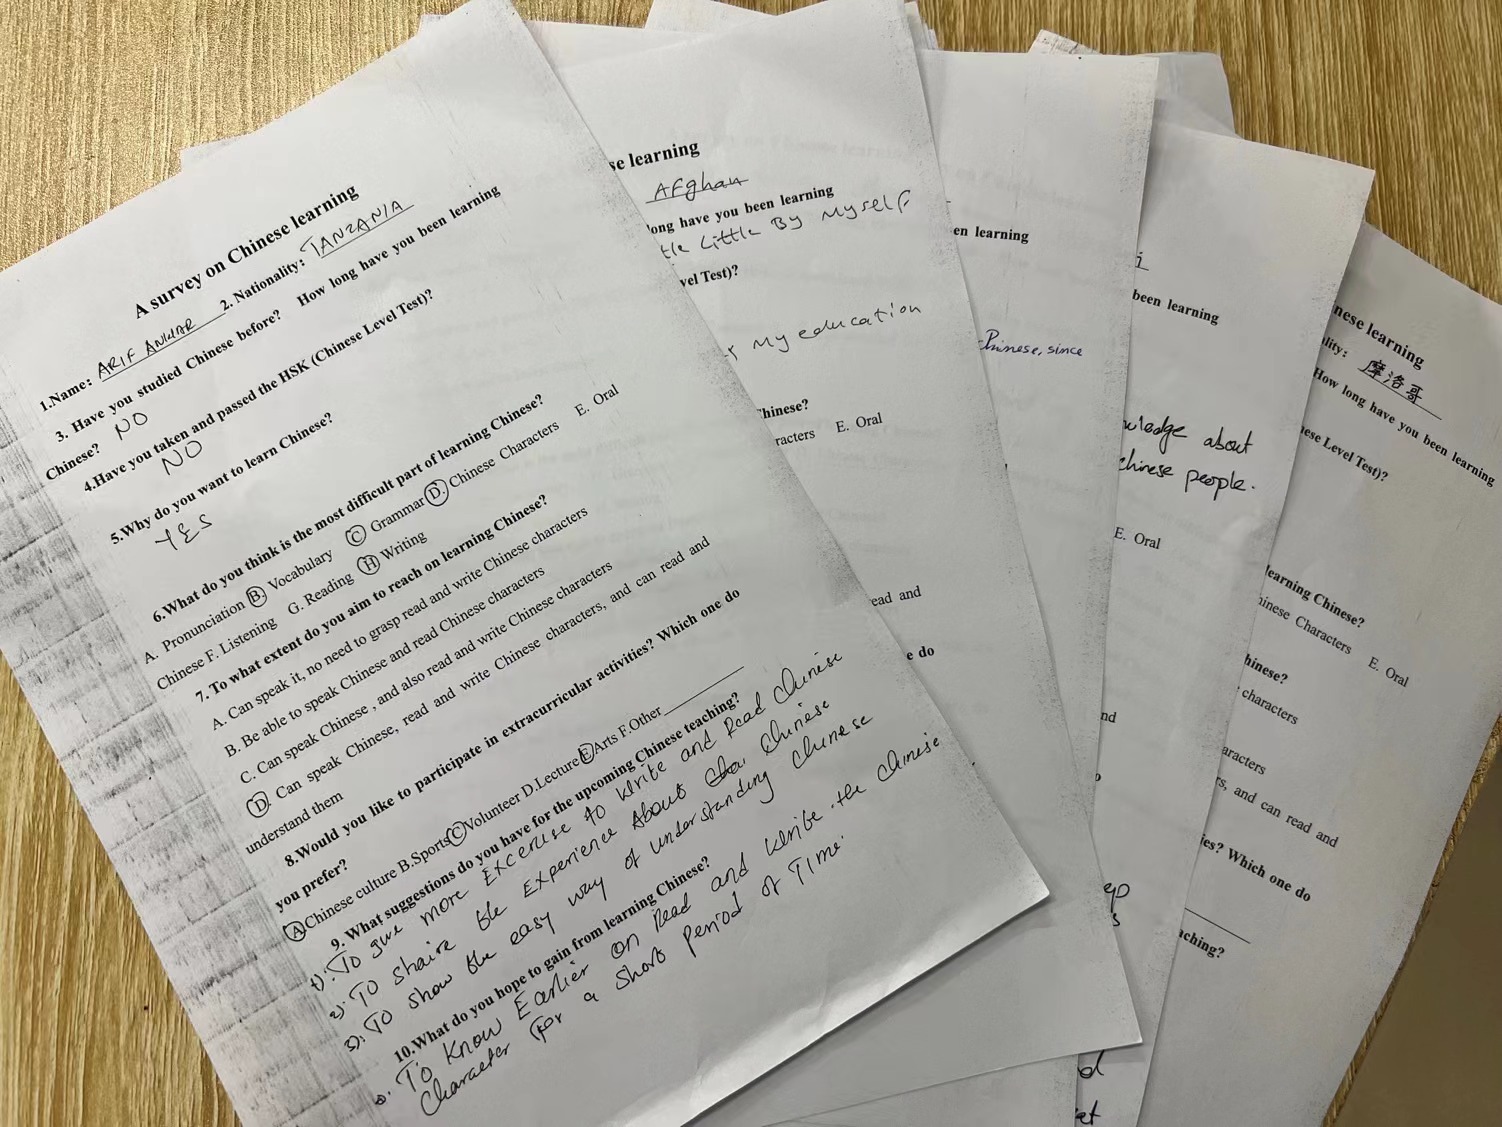 A survey on Chinese learning
1.Name: ARIF ANWAR 2. Nationality: TANZANIA
3. Have you studied Chinese before? How long have you been learning
Chinese? NO
4.Have you taken and passed the HSK (Chinese Level Test)?
NO
5.Why do you want to learn Chinese?
YES
6.What do you think is the most difficult part of learning Chinese?
A. Pronunciation B. Vocabulary C Grammar D. Chinese Characters E. Oral
Chinese F. Listening G. Reading H Writing
7. To what extent do you aim to reach on learning Chinese?
A. Can speak it, no need to grasp read and write Chinese characters
B. Be able to speak Chinese and read Chinese characters
C. Can speak Chinese , and also read and write Chinese characters
D. Can speak Chinese, read and write Chinese characters, and can read and
understand them
8.Would you like to participate in extracurricular activities? Which one do
you prefer?
A Chinese culture B.Sports C Volunteer D.Lecture E Arts F.Other
9. What suggestions do you have for the upcoming Chinese teaching?
1): To give more Excercise to write and Read Chinese
2): To shaire the Experience About Chinese
3): To show the easy way of understanding Chinese
10.What do you hope to gain from learning Chinese?
To Know Earlier on Read and write the Chinese
Character For a short period of Time.
se learning
Afghan
long have you been learning
Little By Myself
vel Test)?
My education
Chinese?
racters E. Oral
ead and
e do
en learning
Chinese, since
been learning
wledge about
Chinese people.
E. Oral
nd
nese learning
lity: 摩洛哥
How long have you been learning
ese Level Test)?
learning Chinese?
hinese Characters E. Oral
hinese?
characters
aracters
rs, and can read and
ies? Which one do
aching?